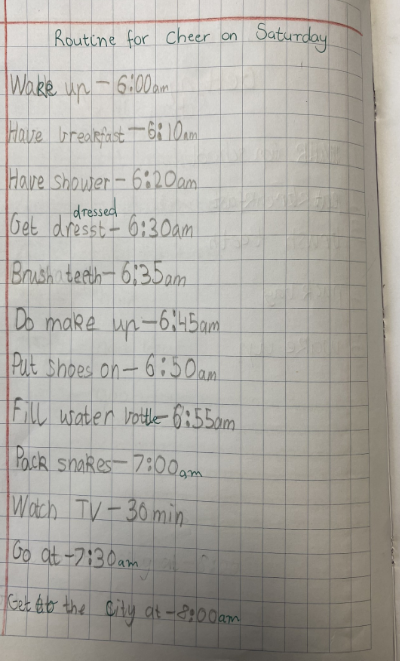 Routine for Cheer on Saturday
Wake up - 6:00am
Have breakfast - 6:10am
Have shower - 6:20am
dressed
Get dresst - 6:30am
Brush teeth - 6:35am
Do make up - 6:45am
Put shoes on - 6:50am
Fill water bottle - 6:55am
Pack snakes - 7:00am
Watch TV - 30min
Go at - 7:30am
Get to the City at - 8:00am